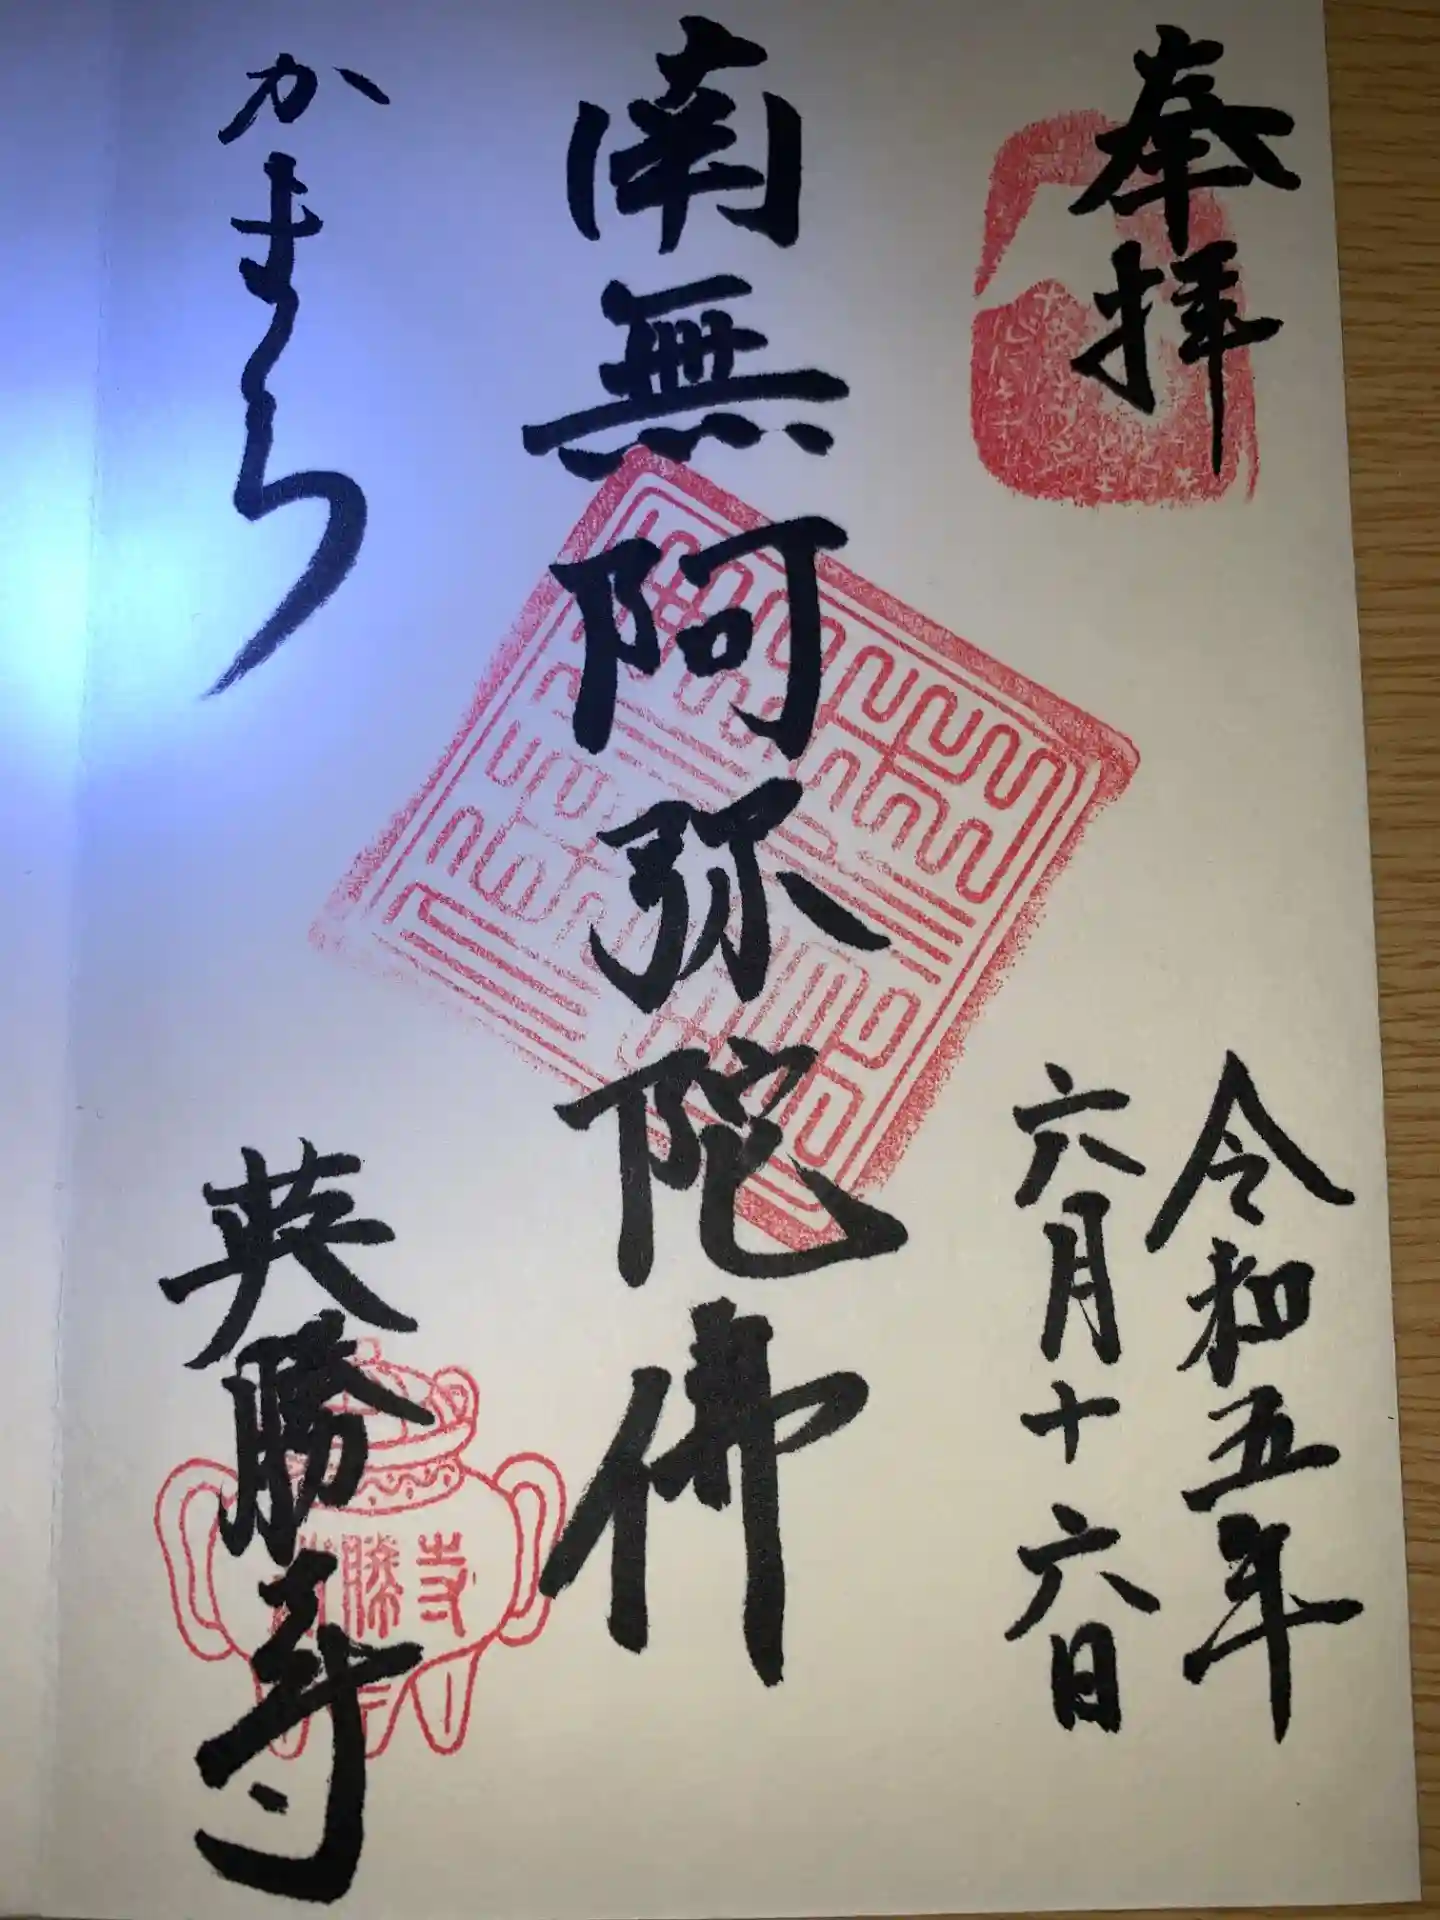 奉拝
令和五年
六月十六日
南無阿弥陀佛
かまくら
英勝寺
勝寺